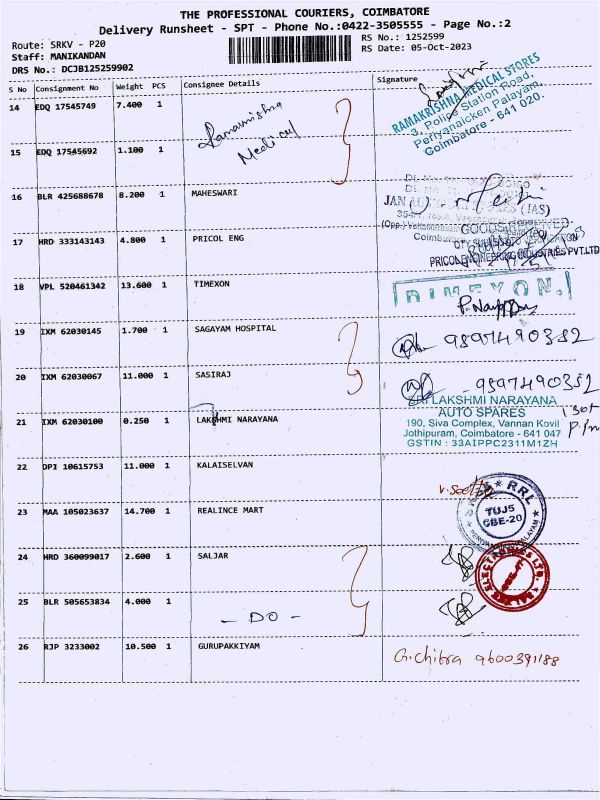 THE PROFESSIONAL COURIERS, COIMBATORE
Delivery Runsheet - SPT - Phone No.:0422-3505555 - Page No.:2
Route: SRKV - P20
Staff: MANIKANDAN
DRS No.: DCJB125259902
RS No.: 1252599
RS Date: 05-Oct-2023
S No Consignment No Weight PCS Consignee Details Signature
14 EDQ 17545749 7.400 1 Ramakrishna Medical
RAMAKRISHNA MEDICAL STORES
3, Police Station Road,
Periyanaicken Palayam,
Coimbatore - 641 020.
15 EDQ 17545692 1.100 1
16 BLR 425688678 8.200 1 MAHESWARI
17 HRD 333143143 4.800 1 PRICOL ENG
PRICOL ENGINEERING INDUSTRIES PVT.LTD
18 VPL 520461342 13.600 1 TIMEXON
TIMEXON.
19 IXM 62030145 1.700 1 SAGAYAM HOSPITAL
9597490352
20 IXM 62030067 11.000 1 SASIRAJ
9597490352
21 IXM 62030100 0.250 1 LAKSHMI NARAYANA
SRI LAKSHMI NARAYANA
AUTO SPARES
190, Siva Complex, Vannan Kovil
Jothipuram, Coimbatore - 641 047
GSTIN : 33AIPPC2311M1ZH
22 DPI 10615753 11.000 1 KALAISELVAN
23 MAA 105023637 14.700 1 REALINCE MART
RRL
TUJ5
CBE-20
24 HRD 360099017 2.600 1 SALJAR
ELECTRONICS LTD.
25 BLR 505653834 4.000 1
- DO -
26 RJP 3233002 10.500 1 GURUPAKKIYAM
G.chitra 9600391188